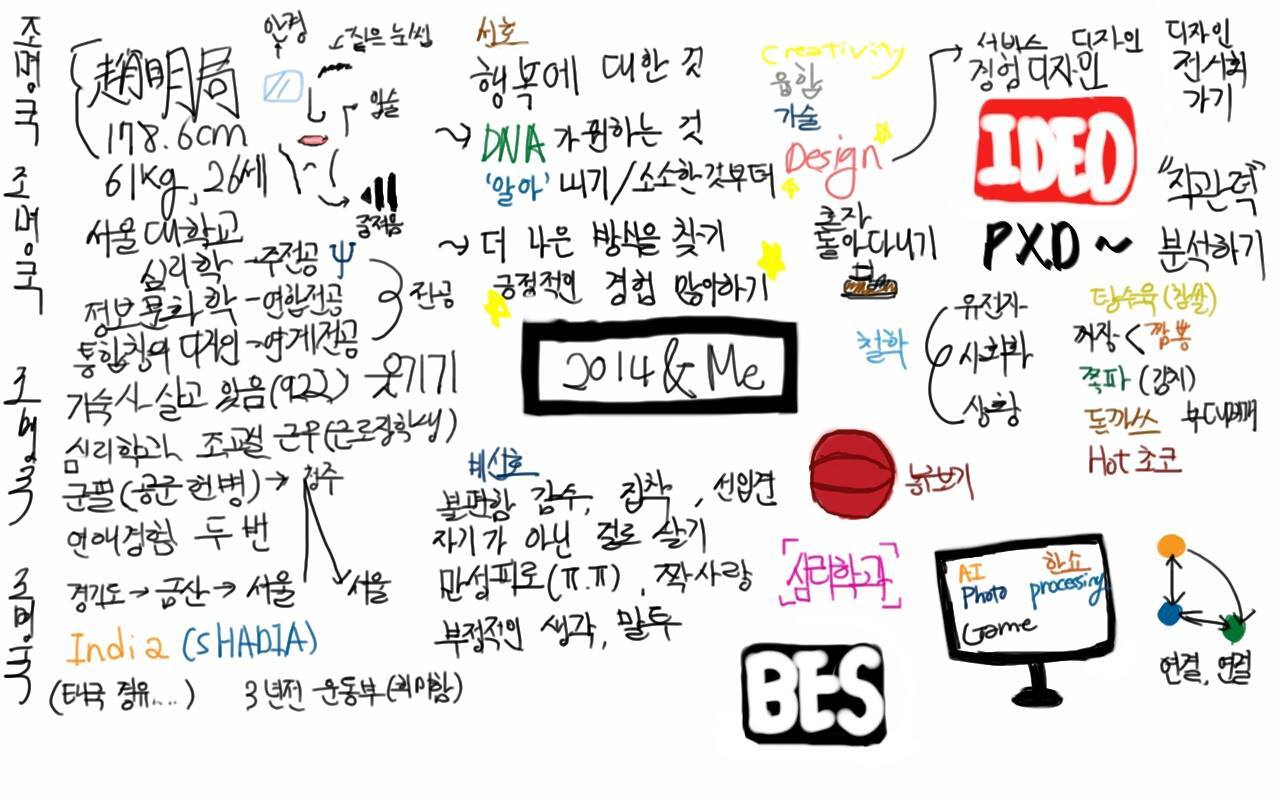 조명국
조명국
조명국
조명국
趙明局
178.6cm
61kg, 26세
안경
소짙은 눈썹
입술
중저음
서울대학교
심리학 → 주전공 Ψ
정보문화학 - 연합전공
통합창의 디자인 → 연계전공
전공
기숙사 살고 있음(922) 웃기기
심리학과 조교실 근무(근로장학생)
군필(공군 헌병) → 청주
연애경험 두 번
경기도 → 금산 → 서울
서울
India (SHADIA)
(태국 경유....)
3년전 운동부(희미함)
선호
행복에 대한 것
~> DNA가 원하는 것
'알아'내기/소소한것부터
~> 더 나은 방식을 찾기
긍정적인 경험 많이하기
2014 & Me
비선호
불편함 감수, 집착, 선입견
자기가 아닌 걸로 살기
만성피로(ㅠ.ㅠ), 짝사랑
부정적인 생각, 말투
Creativity
융합
기술
Design
서비스 디자인
경험디자인
디자인
전시회
가기
IDEO
PXD ~
"직관력"
분석하기
혼자
돌아다니기
철학
유전자
사회화
상황
탕수육(찹쌀)
짬뽕
쪽파(김치)
돈까쓰
Hot 초코
농구보기
[심리학과]
BES
AI 한쇼
Photo processing
Game
연결, 연결